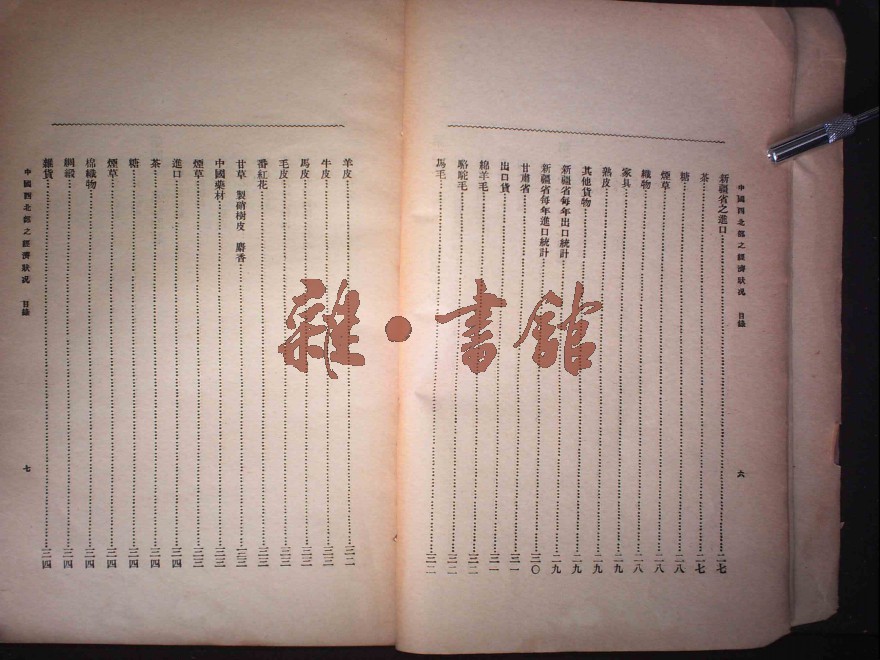 中國西北部之經濟狀况 目錄
六
新疆省之進口 二七
茶 二七
糖 二八
煙草 二八
織物 二八
家具 二九
熟皮 二九
其他貨物 二九
新疆省每年出口統計 二九
新疆省每年進口統計 三〇
甘肅省 三一
出口貨 三一
綿羊毛 三二
駱駝毛 三二
馬毛 三二
羊皮 三二
牛皮 三三
馬皮 三三
毛皮 三三
番紅花 三三
甘草 製硝樹皮 麝香 三三
中國藥材 三三
煙草 三三
進口 三四
茶 三四
糖 三四
煙草 三四
棉織物 三四
綢緞 三四
雜貨 三四
中國西北部之經濟狀况 目錄
七
雜·書館